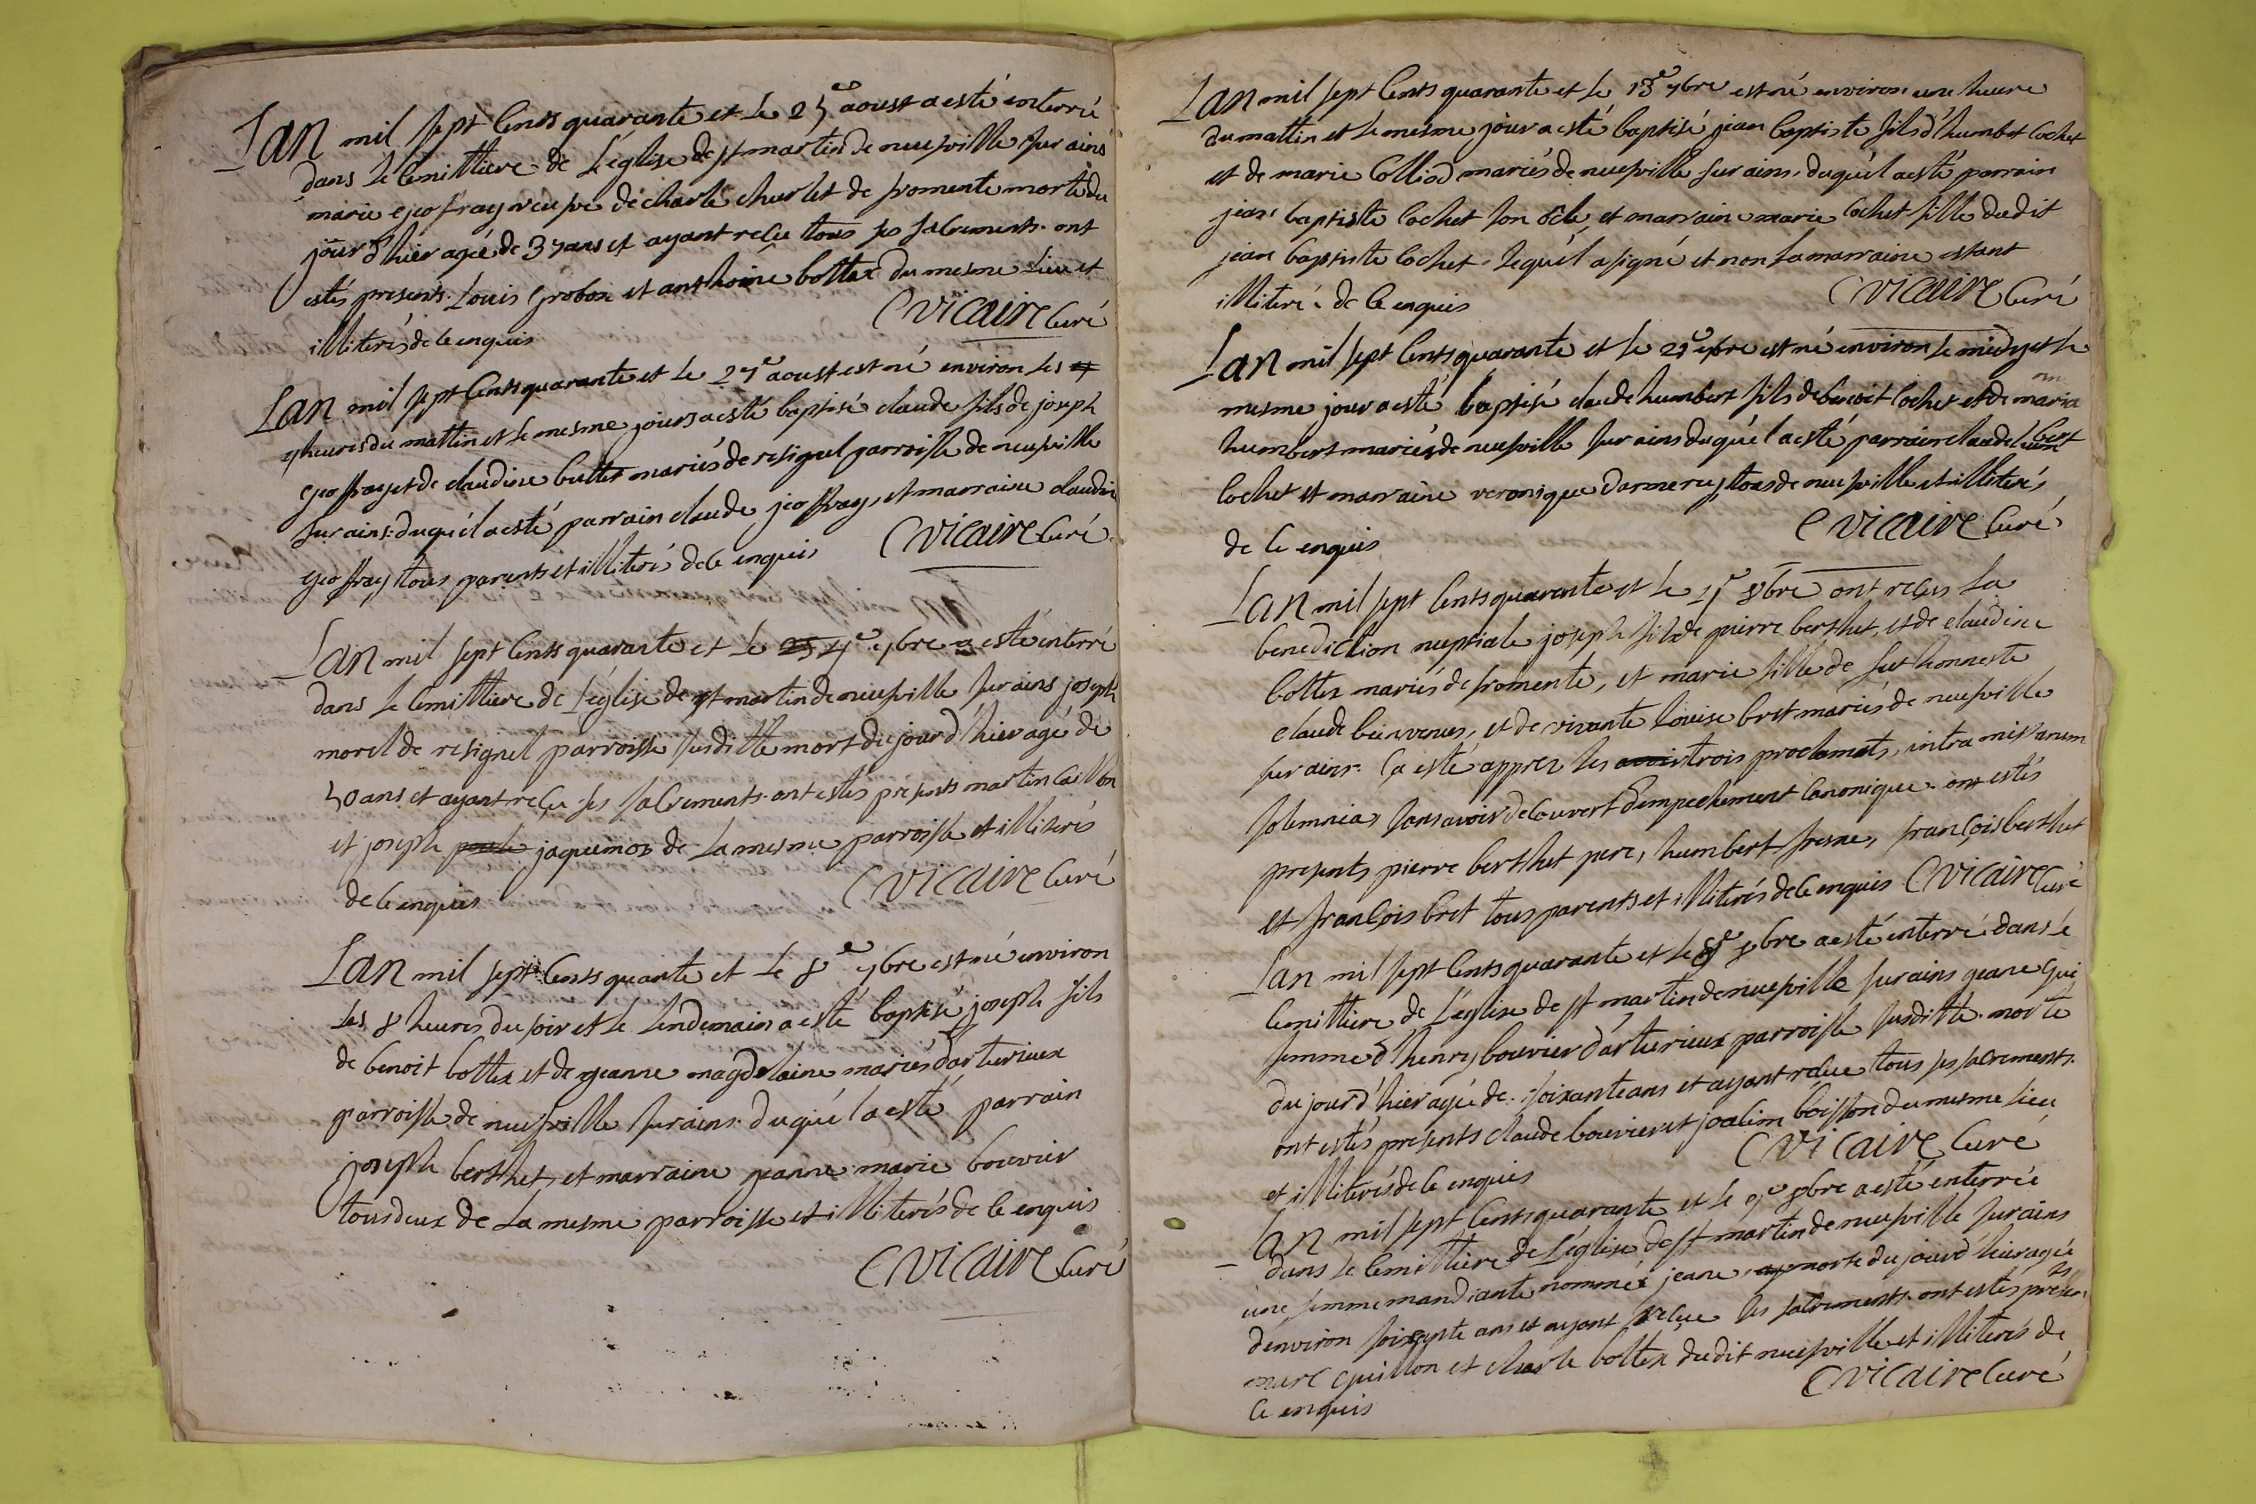 Lan mil sept Cents quarante et le 25e aoust a esté enterré
dans le Cemittiere de L'eglise de st martin de neufville sur ains
marie geoffray veufve de charle charlet de fromente morte du
jour d'hier agée de 37 ans et ayant reçu tous ses sacrements. ont
estés presents. Louis Grobon et anthoine bottex du mesme Lieu et
illiterés de ce enquis Cvicaire Curé
Lan mil sept Cents quarante et le 27e aoust est né environ les
4 heures du mattin et le mesme jour a esté baptisé claude fils de joseph
geoffray et de claudine buttex mariés de resignel parroisse de neufville
sur ains: duquél a esté parrain claude jeoffray, et marraine claudine
geoffray tous parents et illiterés de ce enquis Cvicaire Curé.
Lan mil sept Cents quarante et Le 4e 7bre a esté enterré
dans le Cemittiere de L'eglise de st martin de neufville sur ains joseph
morel de resignel parroisse susditte mort du jour d'hier agé de
50 ans et ayant reçu ses sacrements. ont estés presents martin Caillon
et joseph jaquemox de La mesme parroisse et illiterés
de ce enquis Cvicaire Curé
Lan mil sept Cents quarante et le 8e 7bre est né environ
Les 8 heures du soir et le Lendemain a esté baptisé joseph fils
de benoit bottex et de jeanne magdelaine mariés d'arturieux
parroisse de neufville sur ains. duquél a esté parrain
joseph berthet, et marraine jeanne marie bouvier
tous deux de La mesme parroisse et illiterés de ce enquis
Cvicaire Curé
Lan mil sept Cents quarante et le 13e 7bre est né environ une heure
du mattin et le mesme jour a esté baptisé jean baptiste fils d'humbet Cochet
et de marie Colliod mariés de neufville sur ains. duquél a esté parrain
jean baptiste Cochet son ocle, et marraine marie Cochet fille dudit
jean baptiste Cochet. Lequél a signé et non La marraine estant
illiteré. de ce enquis Cvicaire Curé
Lan mil sept Cents quarante et le 7bre est né environ le midy et le
mesme jour a esté baptisé claude humbert fils de benoit Cochet et de maria
humbert mariés de neufville sur ains duquél a esté parrain claude humbert
Cochet et marraine veronique darmeruy tous de neufville et illiterés
de ce enquis Cvicaire Curé
Lan mil sept Cents quarante et le 8bre ont reçus La
benediction nuptiale joseph fils de pierre berthet, et de claudine
bottex mariés de fromente, et marie fille de fut honneste
claude beinvenus, et de vivante Louise bret mariés de neufville
sur ains. Ca esté apprez les trois proclamats, intra missarum
solemnia, sans avoir decouvert d'empechement Canonique. ont estés
presents pierre berthet pere, humbert fresne, françois berthet
et françois bret tous parents et illiterés de ce enquis Cvicaire Curé
Lan mil sept Cents quarante et le 8e 8bre a esté enterré dans le
Cemittiere de L'eglise de st martin de neufville sur ains jeane
femme d'henry bouvier d'arturieux parroisse susditte. morte
du jour d'hier agée de. soixante ans et ayant reçue tous ses sacrements.
ont estés présents claude bouvier et joalim boisson du mesme Lieu
et illiterés de ce enquis Cvicaire Curé
Lan mil sept Cents quarante et le 9e 8bre a esté enterrée
dans le Cemittiere de L'eglise de st martin de neufville sur ains
une femme mandiante nommée jeane, morte du jour d'hier agée
d'environ soixante ans et ayant reçue les sacrements. ont estés presents
marc quillon et charle bottex dudit neufville et illiterés de
ce enquis Cvicaire Curé